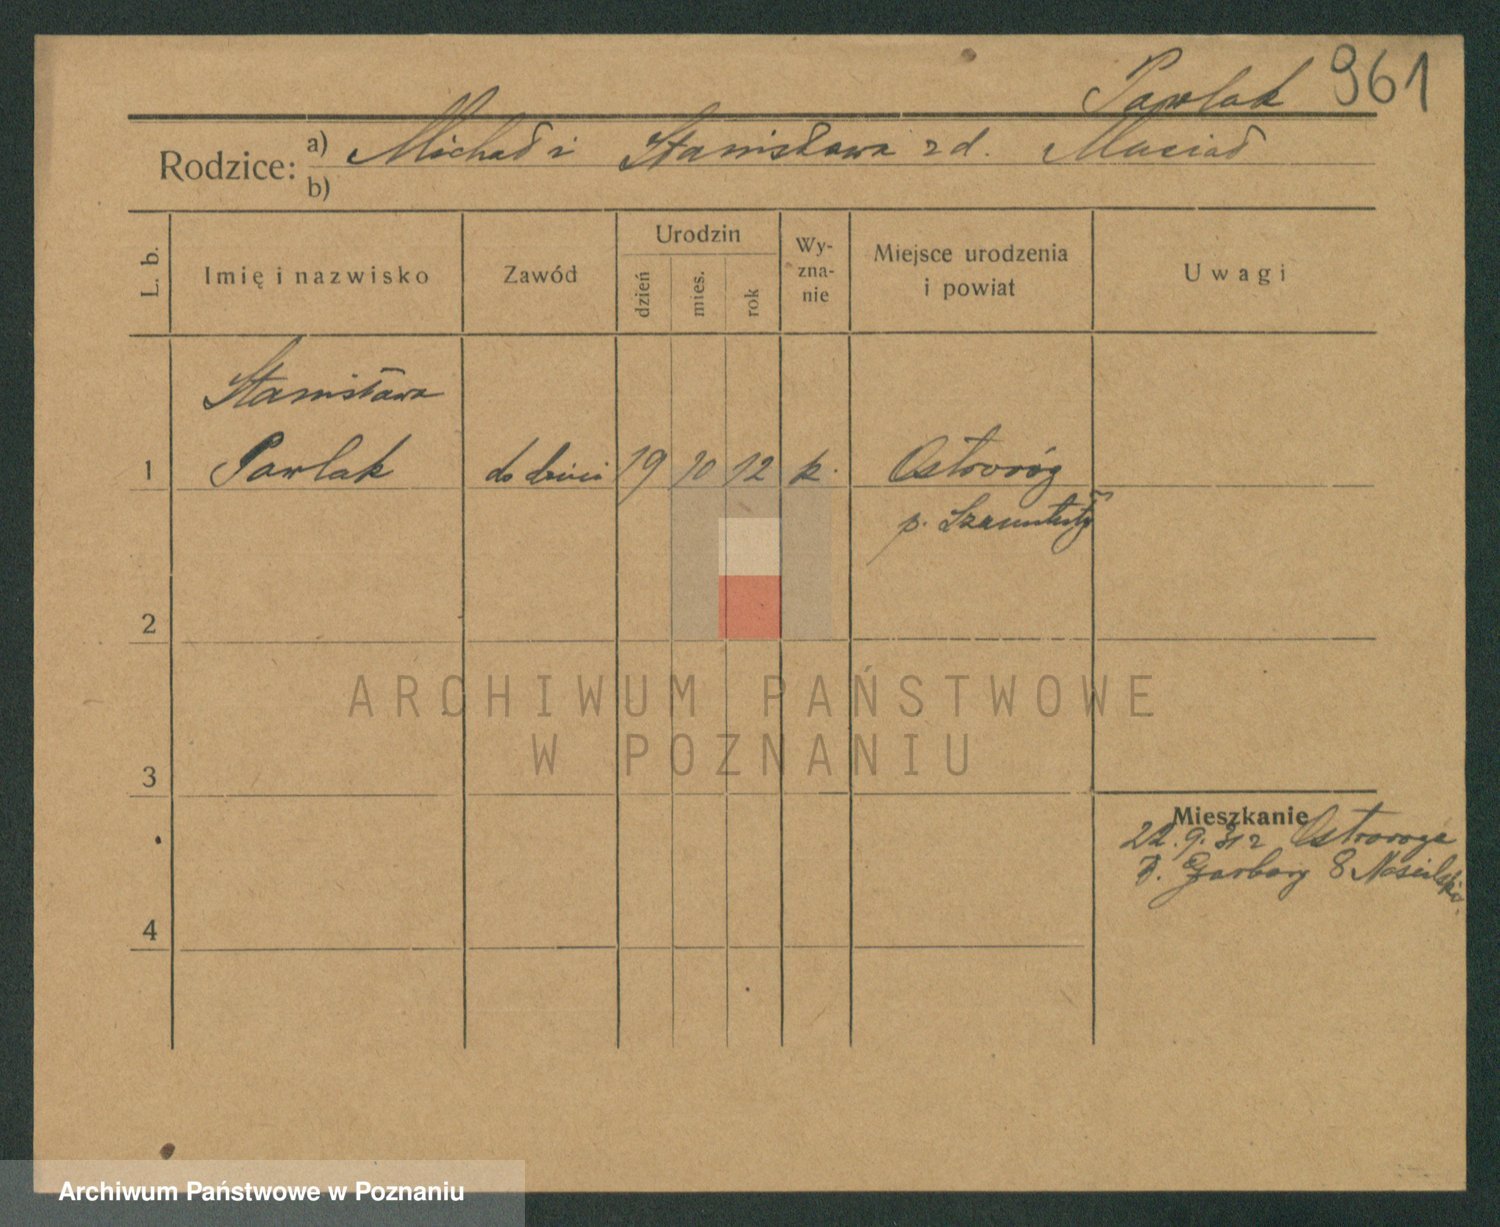 Pawlak 961
Rodzice: a) Michał i Stanisława z d. Musiał
b)
L. b.
Imię i nazwisko
Zawód
Urodzin
dzień
mies.
rok
Wy-
zna-
nie
Miejsce urodzenia
i powiat
Uwagi
Stanisława
1 Pawlak do dzieci 19 10 12 k. Ostroróg
p. Szamotuły
2
ARCHIWUM PAŃSTWOWE
W POZNANIU
3
Mieszkanie
22.9.32 Ostroroga
Garbary 8
4
Archiwum Państwowe w Poznaniu